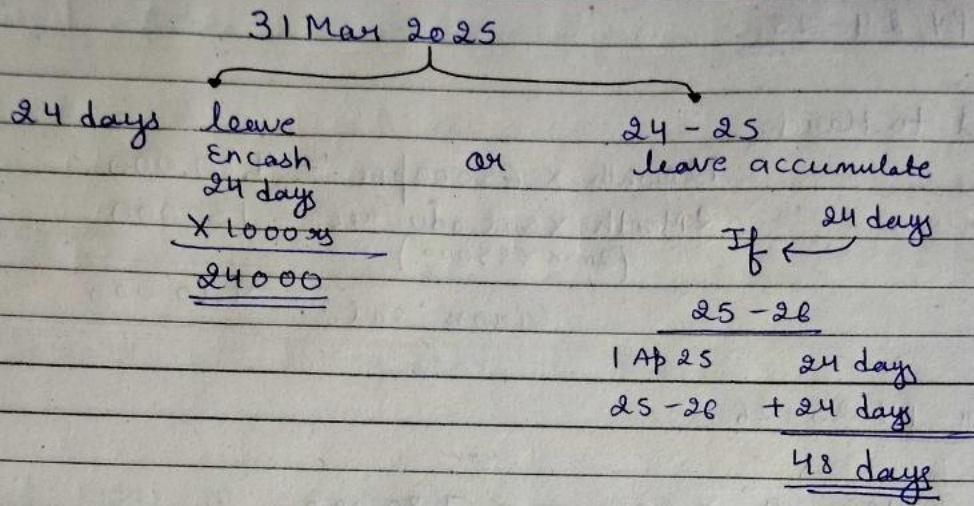 31 Mar 2025
24 days leave
Encash
24 days
X 1000 rs
24000
or
24 - 25
leave accumulate
24 days
If
25 - 26
1 Ap 25 24 days
25 - 26 + 24 days
48 days